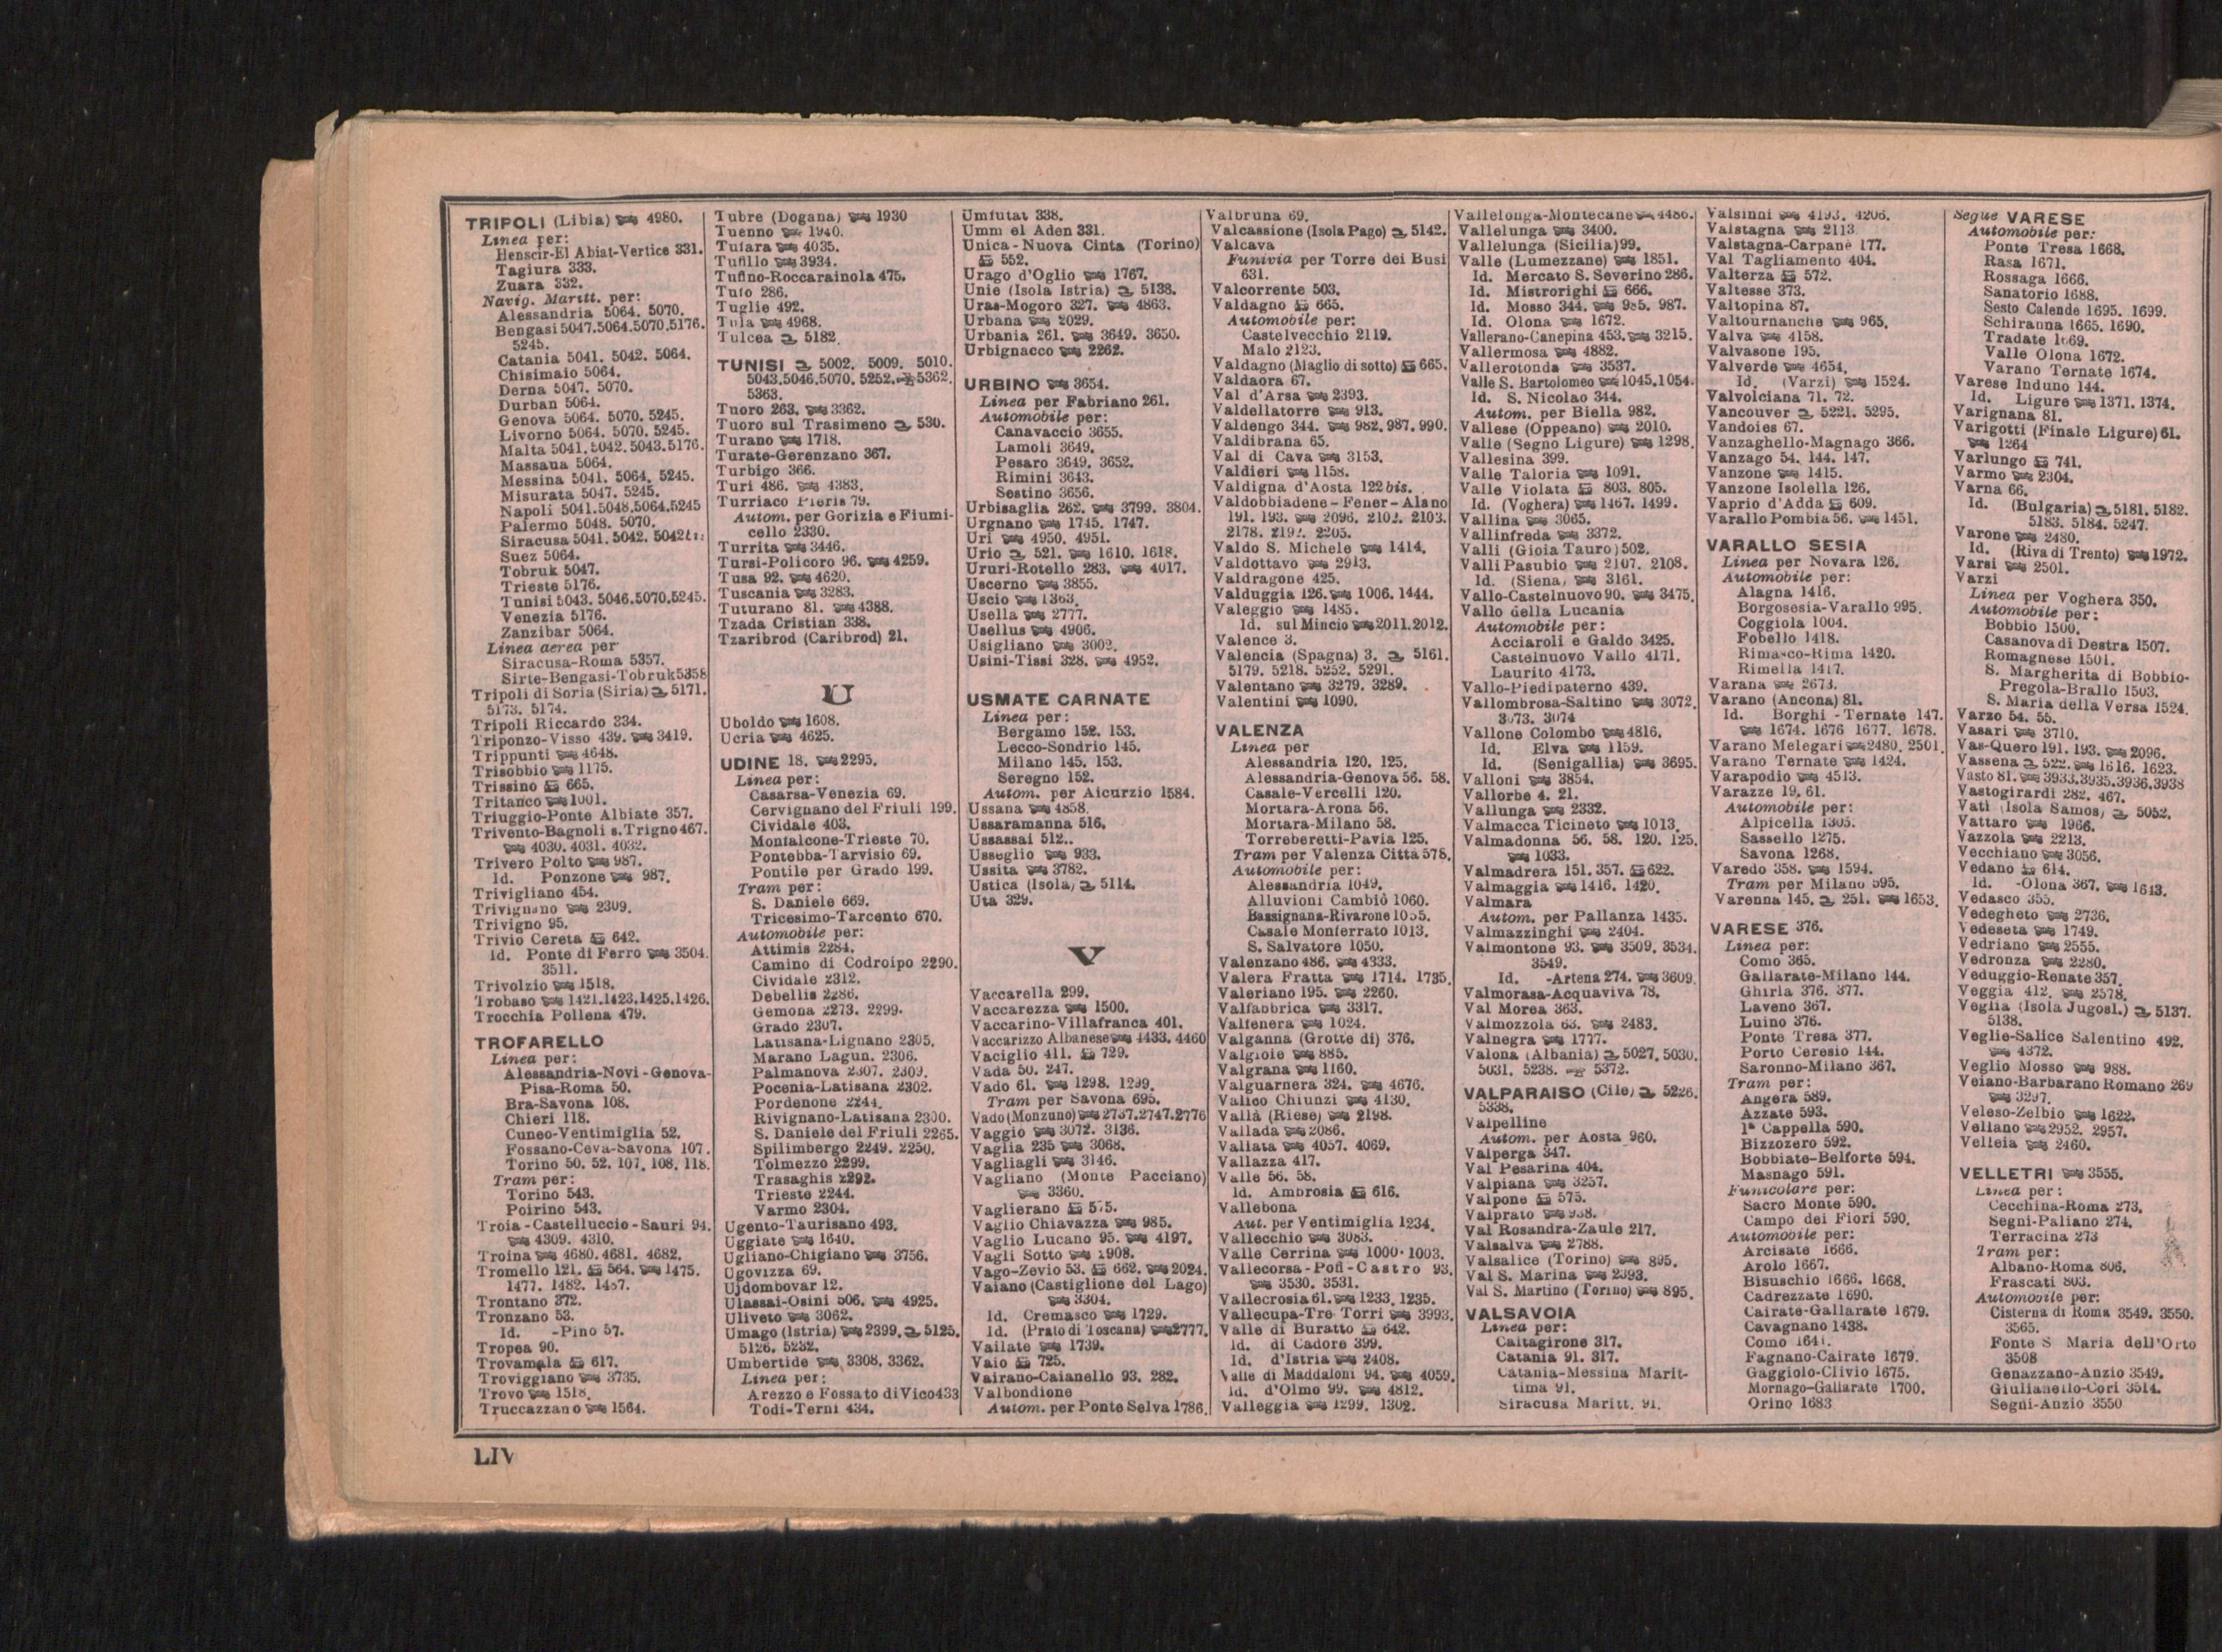 TRIPOLI (Libia) 4980.
Linea per:
Henscir-El Abiat-Vertice 331.
Tagiura 333.
Zuara 332.
Navig. Maritt. per:
Alessandria 5064. 5070.
Bengasi 5047.5064.5070.5176.
5245.
Catania 5041. 5042. 5064.
Chisimaio 5064.
Derna 5047. 5070.
Durban 5064.
Genova 5064. 5070. 5245.
Livorno 5064. 5070. 5245.
Malta 5041. 5042. 5043.5176.
Massaua 5064.
Messina 5041. 5064. 5245.
Misurata 5047. 5245.
Napoli 5041.5048.5064.5245
Palermo 5048. 5070.
Siracusa 5041. 5042. 5042
Suez 5064.
Tobruk 5047.
Trieste 5176.
Tunisi 5043. 5046.5070.5245.
Venezia 5176.
Zanzibar 5064.
Linea aerea per
Siracusa-Roma 5357.
Sirte-Bengasi-Tobruk 5358
Tripoli di Soria (Siria) 5171.
5173. 5174.
Tripoli Riccardo 334.
Triponzo-Visso 439. 3419.
Trippunti 4648.
Trisobbio 1175.
Trissino 665.
Tritanco 1001.
Triuggio-Ponte Albiate 357.
Trivento-Bagnoli s. Trigno 467.
4030. 4031. 4032.
Trivero Polto 987.
Id. Ponzone 987.
Trivigliano 454.
Trivignano 2309.
Trivigno 95.
Trivio Cereta 642.
Id. Ponte di Ferro 3504.
3511.
Trivolzio 1518.
Trobaso 1421.1423.1425.1426.
Trocchia Pollena 479.
TROFARELLO
Linea per:
Alessandria-Novi-Genova-
Pisa-Roma 50.
Bra-Savona 108.
Chieri 118.
Cuneo-Ventimiglia 52.
Fossano-Ceva-Savona 107.
Torino 50. 52. 107. 108. 118.
Tram per:
Torino 543.
Poirino 543.
Troia-Castelluccio-Sauri 94.
4309. 4310.
Troina 4680. 4681. 4682.
Tromello 121. 564. 1475.
1477. 1482. 1487.
Trontano 372.
Tronzano 53.
Id. -Pino 57.
Tropea 90.
Trovamala 617.
Troviggiano 3735.
Trovo 1518.
Truccazzano 1564.
Tubre (Dogana) 1930
Tuenno 1940.
Tufara 4035.
Tufillo 3934.
Tufino-Roccarainola 475.
Tufo 286.
Tuglie 492.
Tula 4968.
Tulcea 5182.
TUNISI 5002. 5009. 5010.
5043.5046.5070. 5252. 5362.
5363.
Tuoro 263. 3362.
Tuoro sul Trasimeno 530.
Turano 1718.
Turate-Gerenzano 367.
Turbigo 366.
Turi 486. 4383.
Turriaco Pieris 79.
Autom. per Gorizia e Fiumi-
cello 2330.
Turrita 3446.
Tursi-Policoro 96. 4259.
Tusa 92. 4620.
Tuscania 3283.
Tuturano 81. 4388.
Tzada Cristian 338.
Tzaribrod (Caribrod) 21.
U
Uboldo 1608.
Ucria 4625.
UDINE 18. 2295.
Linea per:
Casarsa-Venezia 69.
Cervignano del Friuli 199.
Cividale 403.
Monfalcone-Trieste 70.
Pontebba-Tarvisio 69.
Pontile per Grado 199.
Tram per:
S. Daniele 669.
Tricesimo-Tarcento 670.
Automobile per:
Attimis 2284.
Camino di Codroipo 2290.
Cividale 2312.
Debellis 2286.
Gemona 2273. 2299.
Grado 2307.
Latisana-Lignano 2305.
Marano Lagun. 2306.
Palmanova 2307. 2309.
Pocenia-Latisana 2302.
Pordenone 2244.
Rivignano-Latisana 2300.
S. Daniele del Friuli 2265.
Spilimbergo 2249. 2250.
Tolmezzo 2299.
Trasaghis 2292.
Trieste 2244.
Varmo 2304.
Ugento-Taurisano 493.
Uggiate 1640.
Ugliano-Chigiano 3756.
Ugovizza 69.
Ujdombovar 12.
Ulassai-Osini 506. 4925.
Uliveto 3062.
Umago (Istria) 2399. 5125.
5126. 5232.
Umbertide 3308. 3362.
Linea per:
Arezzo e Fossato di Vico 433
Todi-Terni 434.
Umfutat 338.
Umm el Aden 331.
Unica-Nuova Cinta (Torino)
552.
Urago d'Oglio 1767.
Unie (Isola Istria) 5138.
Uras-Mogoro 327. 4863.
Urbana 2029.
Urbania 261. 3649. 3650.
Urbignacco 2262.
URBINO 3654.
Linea per Fabriano 261.
Automobile per:
Canavaccio 3655.
Lamoli 3649.
Pesaro 3649. 3652.
Rimini 3643.
Sestino 3656.
Urbisaglia 262. 3799. 3804.
Urgnano 1745. 1747.
Uri 4950. 4951.
Urio 521. 1610. 1618.
Ururi-Rotello 283. 4017.
Uscerno 3855.
Uscio 1363.
Usella 2777.
Usellus 4906.
Usigliano 3002.
Usini-Tissi 328. 4952.
USMATE CARNATE
Linea per:
Bergamo 152. 153.
Lecco-Sondrio 145.
Milano 145. 153.
Seregno 152.
Autom. per Aicurzio 1584.
Ussana 4858.
Ussaramanna 516.
Ussassai 512..
Usseglio 933.
Ussita 3782.
Ustica (Isola) 5114.
Uta 329.
V
Vaccarella 299.
Vaccarezza 1500.
Vaccarino-Villafranca 401.
Vaccarizzo Albanese 4433. 4460
Vaciglio 411. 729.
Vada 50. 247.
Vado 61. 1298. 1299.
Tram per Savona 695.
Vado (Monzuno) 2737.2747.2776
Vaggio 3072. 3136.
Vaglia 235 3068.
Vagliagli 3146.
Vagliano (Monte Pacciano)
3360.
Vaglierano 575.
Vaglio Chiavazza 985.
Vaglio Lucano 95. 4197.
Vagli Sotto 2908.
Vago-Zevio 53. 662. 2024.
Vaiano (Castiglione del Lago)
3304.
Id. Cremasco 1729.
Id. (Prato di Toscana) 2777.
Vailate 1739.
Vaio 725.
Vairano-Caianello 93. 282.
Valbondione
Autom. per Ponte Selva 1786.
Valbruna 69.
Valcassione (Isola Pago) 5142.
Valcava
Funivia per Torre dei Busi
631.
Valcorrente 503.
Valdagno 665.
Automobile per:
Castelvecchio 2119.
Malo 2123.
Valdagno (Maglio di sotto) 665.
Valdaora 67.
Val d'Arsa 2393.
Valdellatorre 913.
Valdengo 344. 982. 987. 990.
Valdibrana 65.
Val di Cava 3153.
Valdieri 1158.
Valdigna d'Aosta 122bis.
Valdobbiadene-Fener-Alano
191. 193. 2096. 2102. 2103.
2178. 2192. 2205.
Valdo S. Michele 1414.
Valdottavo 2913.
Valdragone 425.
Valduggia 126. 1006. 1444.
Valeggio 1485.
Id. sul Mincio 2011.2012.
Valence 3.
Valencia (Spagna) 3. 5161.
5179. 5218. 5252. 5291.
Valentano 3279. 3289.
Valentini 1090.
VALENZA
Linea per
Alessandria 120. 125.
Alessandria-Genova 56. 58.
Casale-Vercelli 120.
Mortara-Arona 56.
Mortara-Milano 58.
Torreberetti-Pavia 125.
Tram per Valenza Città 578.
Automobile per:
Alessandria 1049.
Alluvioni Cambiò 1060.
Bassignana-Rivarone 1055.
Casale Monferrato 1013.
S. Salvatore 1050.
Valenzano 486. 4333.
Valera Fratta 1714. 1735.
Valeriano 195. 2260.
Valfabbrica 3317.
Valfenera 1024.
Valganna (Grotte di) 376.
Valgioie 885.
Valgrana 1160.
Valguarnera 324. 4676.
Valico Chiunzi 4130.
Vallà (Riese) 2198.
Vallada 2086.
Vallata 4057. 4069.
Vallazza 417.
Valle 56. 58.
Id. Ambrosia 616.
Vallebona
Aut. per Ventimiglia 1234.
Vallecchio 3083.
Valle Cerrina 1000·1003.
Vallecorsa-Pofi-Castro 93.
3530. 3531.
Vallecrosia 61. 1233. 1235.
Vallecupa-Tre Torri 3993.
Valle di Buratto 642.
Id. di Cadore 399.
Id. d'Istria 2408.
Valle di Maddaloni 94. 4059.
Id. d'Olmo 99. 4812.
Valleggia 1299. 1302.
Vallelonga-Montecane 4486.
Vallelunga 3400.
Vallelunga (Sicilia) 99.
Valle (Lumezzane) 1851.
Id. Mercato S. Severino 286.
Id. Mistrorighi 666.
Id. Mosso 344. 985. 987.
Id. Olona 1672.
Vallerano-Canepina 453. 3215.
Vallermosa 4882.
Vallerotonda 3537.
Valle S. Bartolomeo 1045.1054.
Id. S. Nicolao 344.
Autom. per Biella 982.
Vallese (Oppeano) 2010.
Valle (Segno Ligure) 1298.
Vallesina 399.
Valle Taloria 1091.
Valle Violata 803. 805.
Id. (Voghera) 1467. 1499.
Vallina 3065.
Vallinfreda 3372.
Valli (Gioia Tauro) 502.
Valli Pasubio 2107. 2108.
Id. (Siena) 3161.
Vallo-Castelnuovo 90. 3475.
Vallo della Lucania
Automobile per:
Acciaroli e Galdo 3425.
Castelnuovo Vallo 4171.
Laurito 4173.
Vallo-Piedipaterno 439.
Vallombrosa-Saltino 3072.
3073. 3074
Vallone Colombo 4816.
Id. Elva 1159.
Id. (Senigallia) 3695.
Valloni 3854.
Vallorbe 4. 21.
Vallunga 2332.
Valmacca Ticineto 1013.
Valmadonna 56. 58. 120. 125.
1033.
Valmadrera 151. 357. 622.
Valmaggia 1416. 1420.
Valmara
Autom. per Pallanza 1435.
Valmazzinghi 2404.
Valmontone 93. 3509. 3534.
3549.
Id. -Artena 274. 3609.
Valmorasa-Acquaviva 78.
Val Morea 363.
Valmozzola 63. 2483.
Valnegra 1777.
Valona (Albania) 5027. 5030.
5031. 5238. 5372.
VALPARAISO (Cile) 5226.
5338.
Valpelline
Autom. per Aosta 960.
Valperga 347.
Val Pesarina 404.
Valpiana 3257.
Valpone 575.
Valprato 938.
Val Rosandra-Zaule 217.
Valsalva 2788.
Valsalice (Torino) 895.
Val S. Marina 2393.
Val S. Martino (Torino) 895.
VALSAVOIA
Linea per:
Caltagirone 317.
Catania 91. 317.
Catania-Messina Marit-
tima 91.
Siracusa Maritt. 91.
Valsinni 4193. 4206.
Valstagna 2113
Valstagna-Carpanè 177.
Val Tagliamento 404.
Valterza 572.
Valtesse 373.
Valtopina 87.
Valtournanche 965.
Valva 4158.
Valvasone 195.
Valverde 4654.
Id. (Varzi) 1524.
Valvolciana 71. 72.
Vancouver 5221. 5295.
Vandoies 67.
Vanzaghello-Magnago 366.
Vanzago 54. 144. 147.
Vanzone 1415.
Vanzone Isolella 126.
Vaprio d'Adda 609.
Varallo Pombia 56. 1451.
VARALLO SESIA
Linea per Novara 126.
Automobile per:
Alagna 1416.
Borgosesia-Varallo 995.
Coggiola 1004.
Fobello 1418.
Rimasco-Rima 1420.
Rimella 1417.
Varana 2673.
Varano (Ancona) 81.
Id. Borghi-Ternate 147.
1674. 1676 1677. 1678.
Varano Melegari 2480. 2501.
Varano Ternate 1424.
Varapodio 4513.
Varazze 19. 61.
Automobile per:
Alpicella 1305.
Sassello 1275.
Savona 1268.
Varedo 358. 1594.
Tram per Milano 595.
Varenna 145. 251. 1653.
VARESE 376.
Linea per:
Como 365.
Gallarate-Milano 144.
Ghirla 376. 377.
Laveno 367.
Luino 376.
Ponte Tresa 377.
Porto Ceresio 144.
Saronno-Milano 367.
Tram per:
Angera 589.
Azzate 593.
1ª Cappella 590.
Bizzozero 592.
Bobbiate-Belforte 594.
Masnago 591.
Funicolare per:
Sacro Monte 590.
Campo dei Fiori 590.
Automobile per:
Arcisate 1666.
Arolo 1667.
Bisuschio 1666. 1668.
Cadrezzate 1690.
Cairate-Gallarate 1679.
Cavagnano 1438.
Como 1641.
Fagnano-Cairate 1679.
Gaggiolo-Clivio 1675.
Mornago-Gallarate 1700.
Orino 1683
Segue VARESE
Automobile per:
Ponte Tresa 1668.
Rasa 1671.
Rossaga 1666.
Sanatorio 1688.
Sesto Calende 1695. 1699.
Schiranna 1665. 1690.
Tradate 1669.
Valle Olona 1672.
Varano Ternate 1674.
Varese Induno 144.
Id. Ligure 1371. 1374.
Varignana 81.
Varigotti (Finale Ligure) 61.
1264
Varlungo 741.
Varmo 2304.
Varna 66.
Id. (Bulgaria) 5181. 5182.
5183. 5184. 5247.
Varone 2480.
Id. (Riva di Trento) 1972.
Varsi 2501.
Varzi
Linea per Voghera 350.
Automobile per:
Bobbio 1500.
Casanova di Destra 1507.
Romagnese 1501.
S. Margherita di Bobbio-
Pregola-Brallo 1503.
S. Maria della Versa 1524.
Varzo 54. 55.
Vasari 3710.
Vas-Quero 191. 193. 2096.
Vassena 522. 1616. 1623.
Vasto 81. 3933.3935.3936.3938
Vastogirardi 282. 467.
Vati (Isola Samos) 5052.
Vattaro 1966.
Vazzola 2213.
Vecchiano 3056.
Vedano 614.
Id. -Olona 367. 1643.
Vedasco 355.
Vedegheto 2736.
Vedeseta 1749.
Vedriano 2555.
Vedronza 2280.
Veduggio-Renate 357.
Veggia 412. 2578.
Veglia (Isola Jugosl.) 5137.
5138.
Veglie-Salice Salentino 492.
4372.
Veglio Mosso 988.
Veiano-Barbarano Romano 269
3297.
Veleso-Zelbio 1622.
Vellano 2952. 2957.
Velleia 2460.
VELLETRI 3555.
Linea per:
Cecchina-Roma 273.
Segni-Paliano 274.
Terracina 273
Tram per:
Albano-Roma 806.
Frascati 803.
Automobile per:
Cisterna di Roma 3549. 3550.
3565.
Fonte S Maria dell'Orto
3508
Genazzano-Anzio 3549.
Giulianello-Cori 3514.
Segni-Anzio 3550
LIV